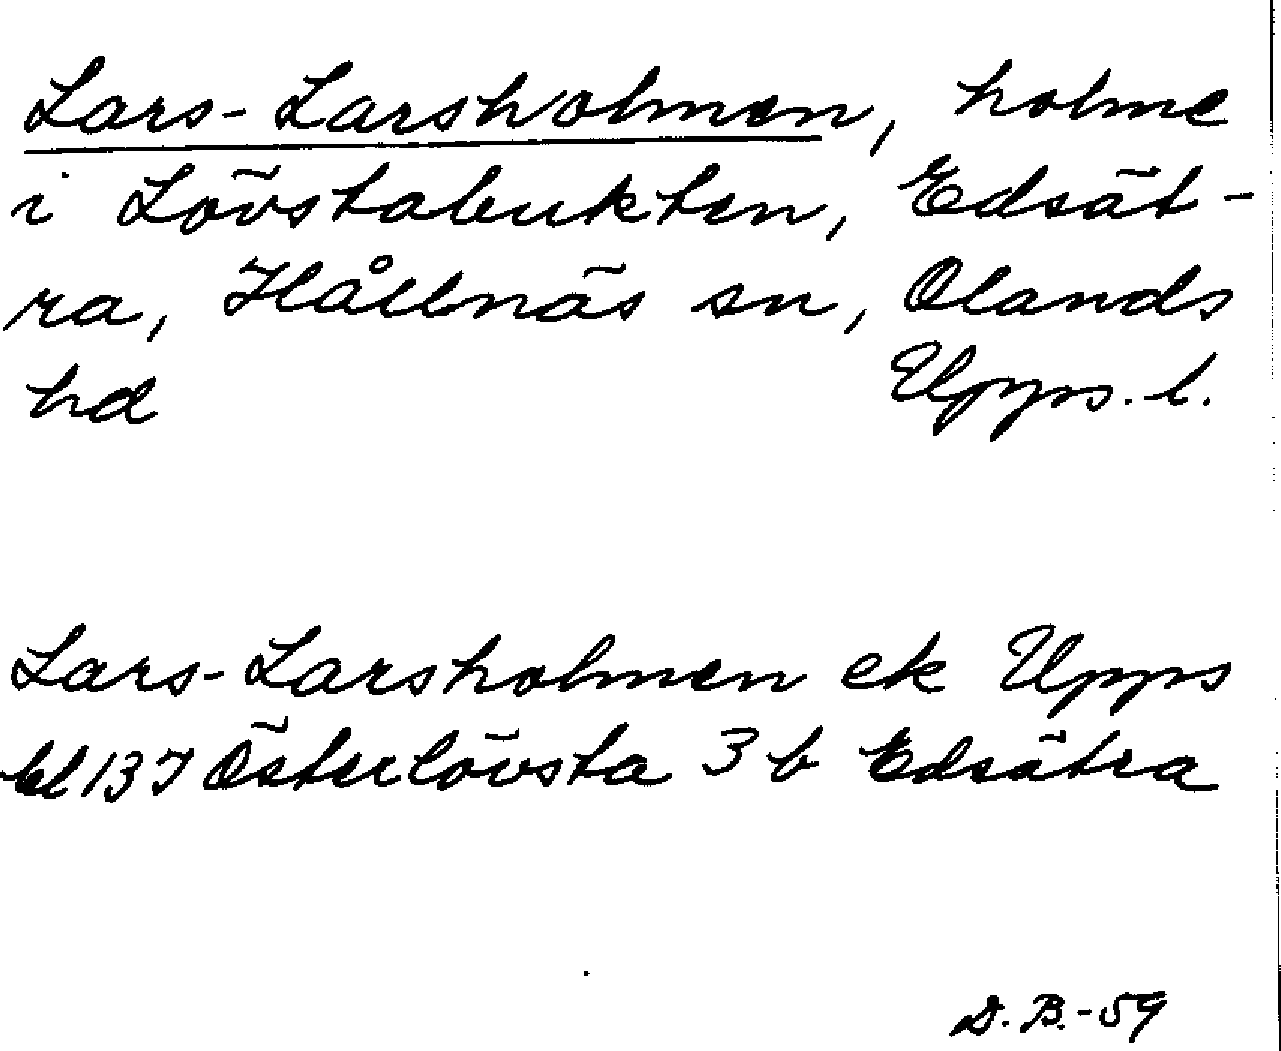 Lars-Larsholmen, holme
i Lövstabukten, Edsät-
ra, Hållnäs sn, Olands
hd Upps. l.
Lars-Larsholmen ek Upps
bl 137 Österlövsta 3 b Edsätra
D. B.-59